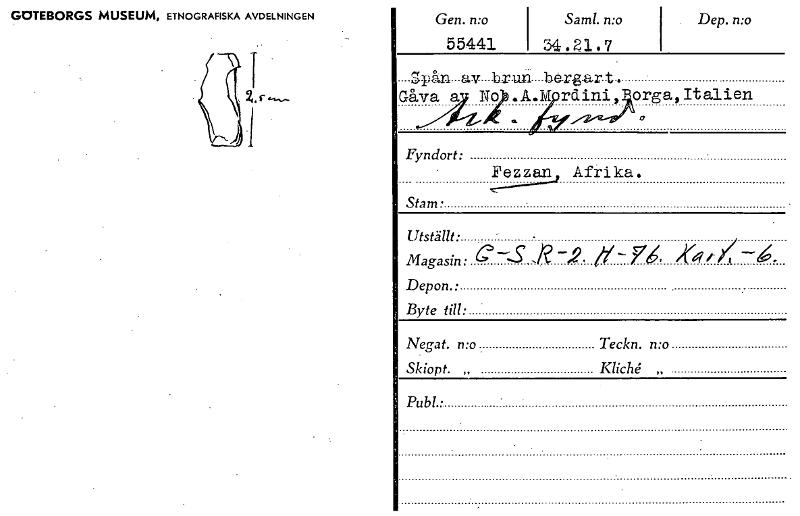 GÖTEBORGS MUSEUM, ETNOGRAFISKA AVDELNINGEN
2,5 cm
Gen. n:o Saml. n:o Dep. n:o
55441 34.21.7
Spån av brun bergart.
Gåva av Nob.A.Mordini,Borga,Italien
Ark. fynd.
Fyndort:
Fezzan, Afrika.
Stam:
Utställt:
Magasin: G-S R-2. H-76. Kart. -6.
Depon.:
Byte till:
Negat. n:o Teckn. n:o
Skiopt. „ Kliché „
Publ.: